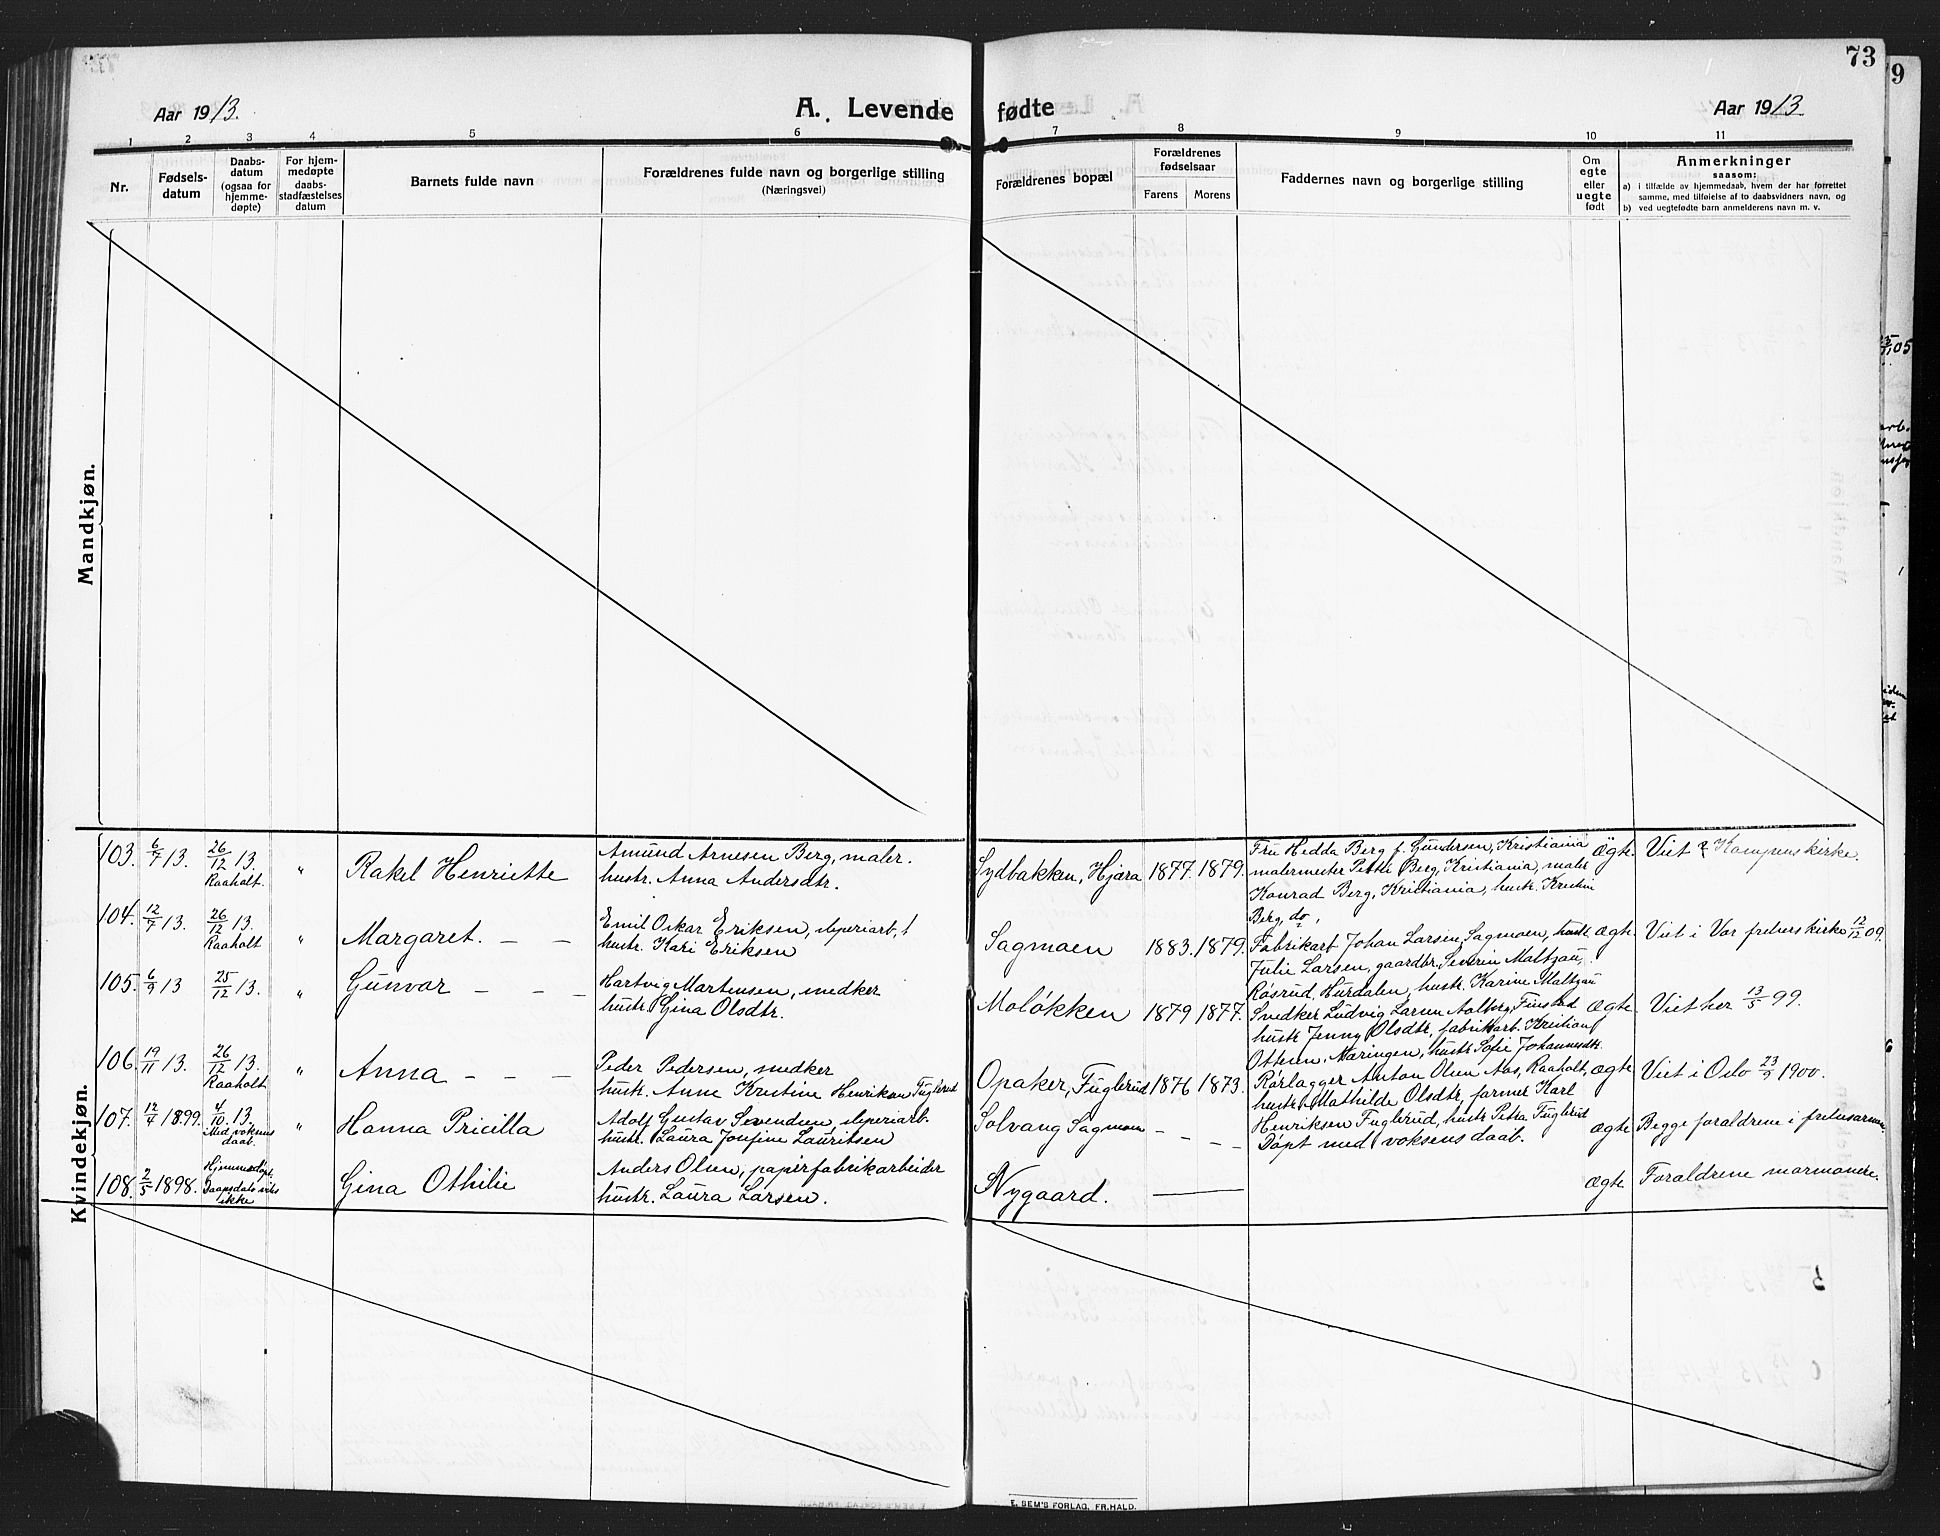 73
Aar 1913.
A. Levende
fødte
Aar 1913.
1 2 3 4 5 6 7 8 9 10 11
Nr.
Fødsels-
datum
Daabs-
datum
(ogsaa for
hjemme-
døpte)
For hjem-
medøpte
daabs-
stadfæstelses
datum
Barnets fulde navn
Forældrenes fulde navn og borgerlige stilling
(Næringsvei)
Forældrenes bopæl
Forældrenes
fødselsaar
Farens Morens
Faddernes navn og borgerlige stilling
Om
egte
eller
uegte
født
Anmerkninger
saasom:
a) i tilfælde av hjemmedaab, hvem der har forrettet
samme, med tilføielse af to daabsvidners navn, og
b) ved uegtefødte barn anmelderens navn m. v.
Mandkjøn.
Kvindekjøn.
103. 6/7 13. 26/12 13. Raaholt. " Rakel Henriette
Amund Arnesen Berg, maler.
hustr. Anna Andersdtr.
Sydbakken, Hjæra 1877. 1879.
Fru Hedda Berg f. Gundersen, Kristiania
malermester Petter Berg, Kristiania, maler
Konrad Berg, Kristiania, hustr. Kristin
Berg, do,
ægte. Viet Kampens kirke.
104. 12/7 13. 26/12 13. Raaholt " Margaret. — —
Emil Oskar Eriksen, sliperiarb,
hustr. Kari Eriksen
Sagmoen 1883. 1879.
Fabrikarb Johan Larsen, Sagmoen, hustr.
Julie Larsen, gaardbr. Severin Maltzau,
Røsrud, Hurdalen, hustr. Karine Maltzau
ægte. Viet i Vor frelsers kirke 12/12 09.
105. 6/9 13 25/12 13. " Gunvor — — —
Hartvig Martensen, snedker
hustr. Gina Olsdtr.
Moløkken 1879 1877.
Snedker Ludvig Larsen Aalborg, Finstad
hustr Jenny Olsdtr, fabrikarb. Kristian
Ottesen, Næringen, hustr. Sofie Johannesdtr.
ægte. Viet her 13/5 99.
106. 19/11 13. 26/12 13. Raaholt " Anna — — —
Peder Pedersen, snedker
hustr. Anne Kristine Henriksen Fuglerud
Opaker, Fuglerud 1876 1873.
Rørlægger Anton Olsen Aas, Raaholt,
hustr. Mathilde Olsdtr, former Karl
Henriksen Fuglerud, hustr Petra Fuglerud
ægte Viet i Oslo 23/9 1900.
107. 12/4 1899. 4/10. 13. Med voksens daab. " Hanna Pricilla
Adolf Gustav Svendsen, sliperiarb.
hustr. Laura Josefine Lauritsen
Solvang Sagmoen — — — —
Døpt med voksens daab.
ægte Begge forældrene i frelsesarmeen.
108. 2/5 1898. Hjemmedøpt, Daapsdato vites ikke Gina Othilie
Anders Olsen, papirfabrikarbeider
hustr. Laura Larsen.
Nygaard. ———
ægte Forældrene mormonere.
E. SEM'S FORLAG, FR.HALD.